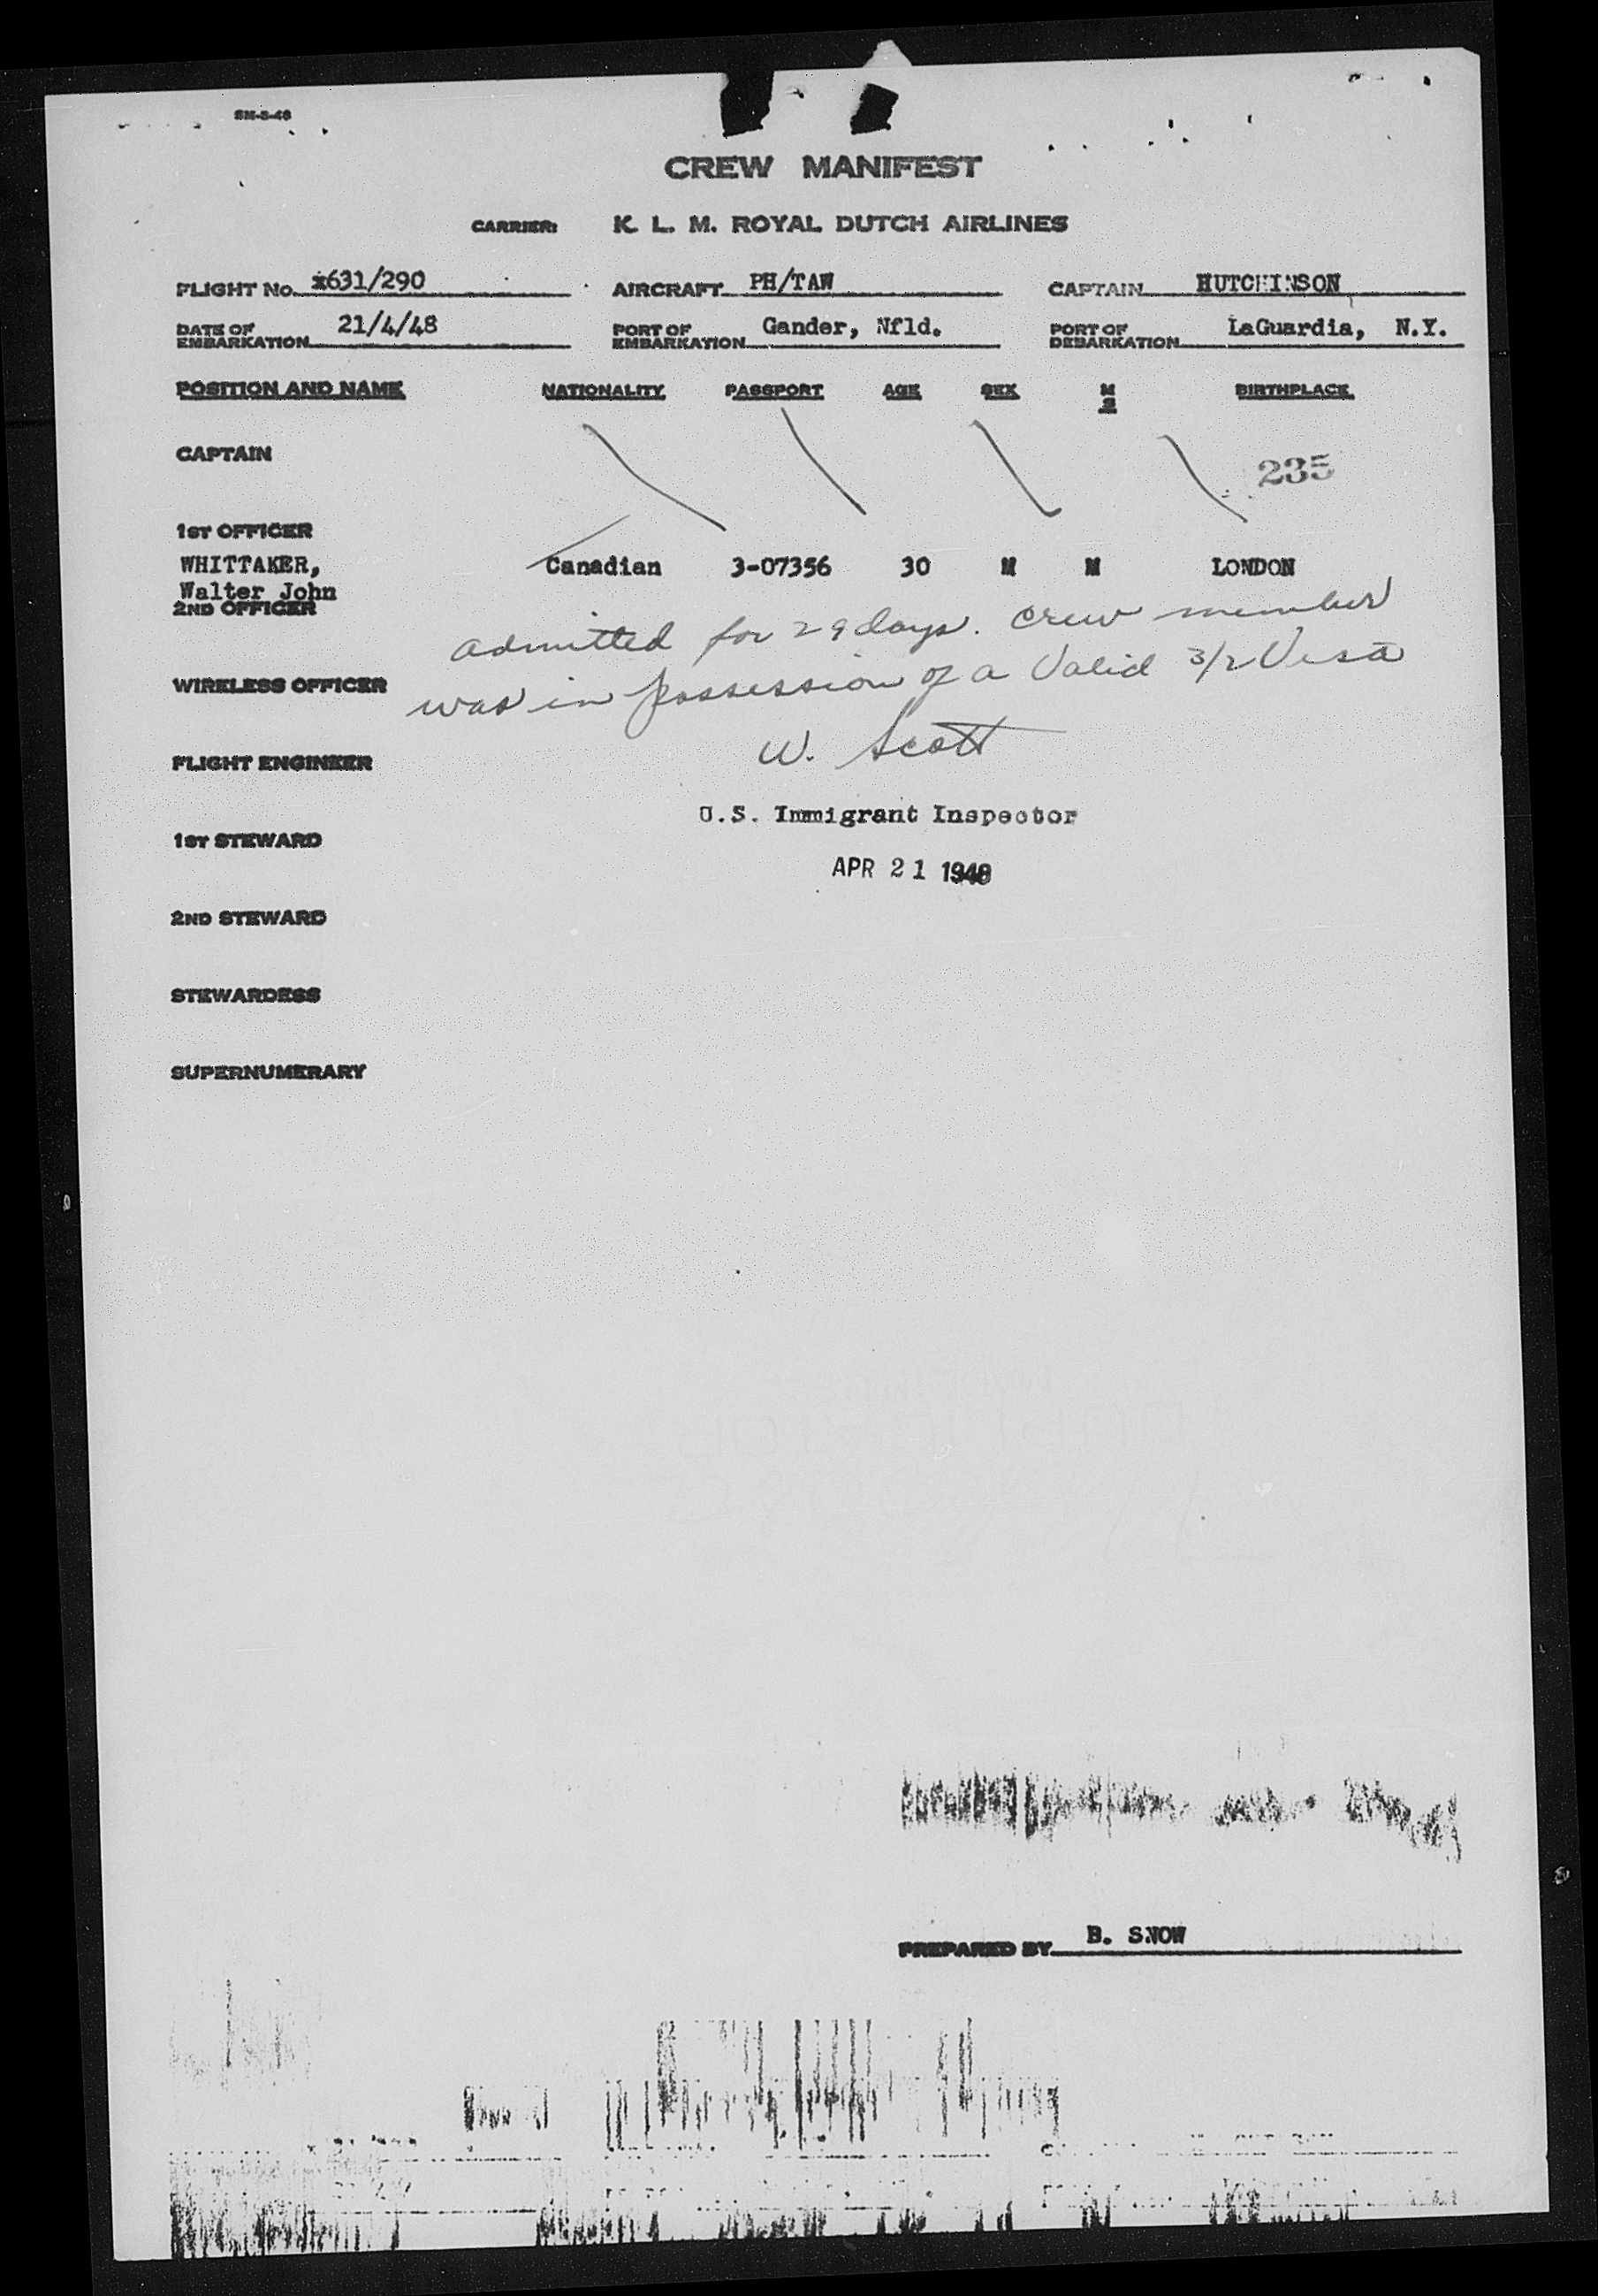 5M-8-46
CREW MANIFEST
CARRIER: K. L. M. ROYAL DUTCH AIRLINES
FLIGHT No. x631/290 AIRCRAFT PH/TAW CAPTAIN HUTCHINSON
DATE OF EMBARKATION 21/4/48 PORT OF EMBARKATION Gander, Nfld. PORT OF DEBARKATION LaGuardia, N.Y.
POSITION AND NAME NATIONALITY PASSPORT AGE SEX M S BIRTHPLACE
CAPTAIN 235
1ST OFFICER
WHITTAKER, Canadian 3-07356 30 M M LONDON
Walter John
2ND OFFICER
admitted for 29 days. Crew member
was in possession of a Valid 3/2 Visa
WIRELESS OFFICER
W. Scott
FLIGHT ENGINEER
U.S. Immigrant Inspector
1ST STEWARD
APR 21 1948
2ND STEWARD
STEWARDESS
SUPERNUMERARY
PREPARED BY B. SNOW